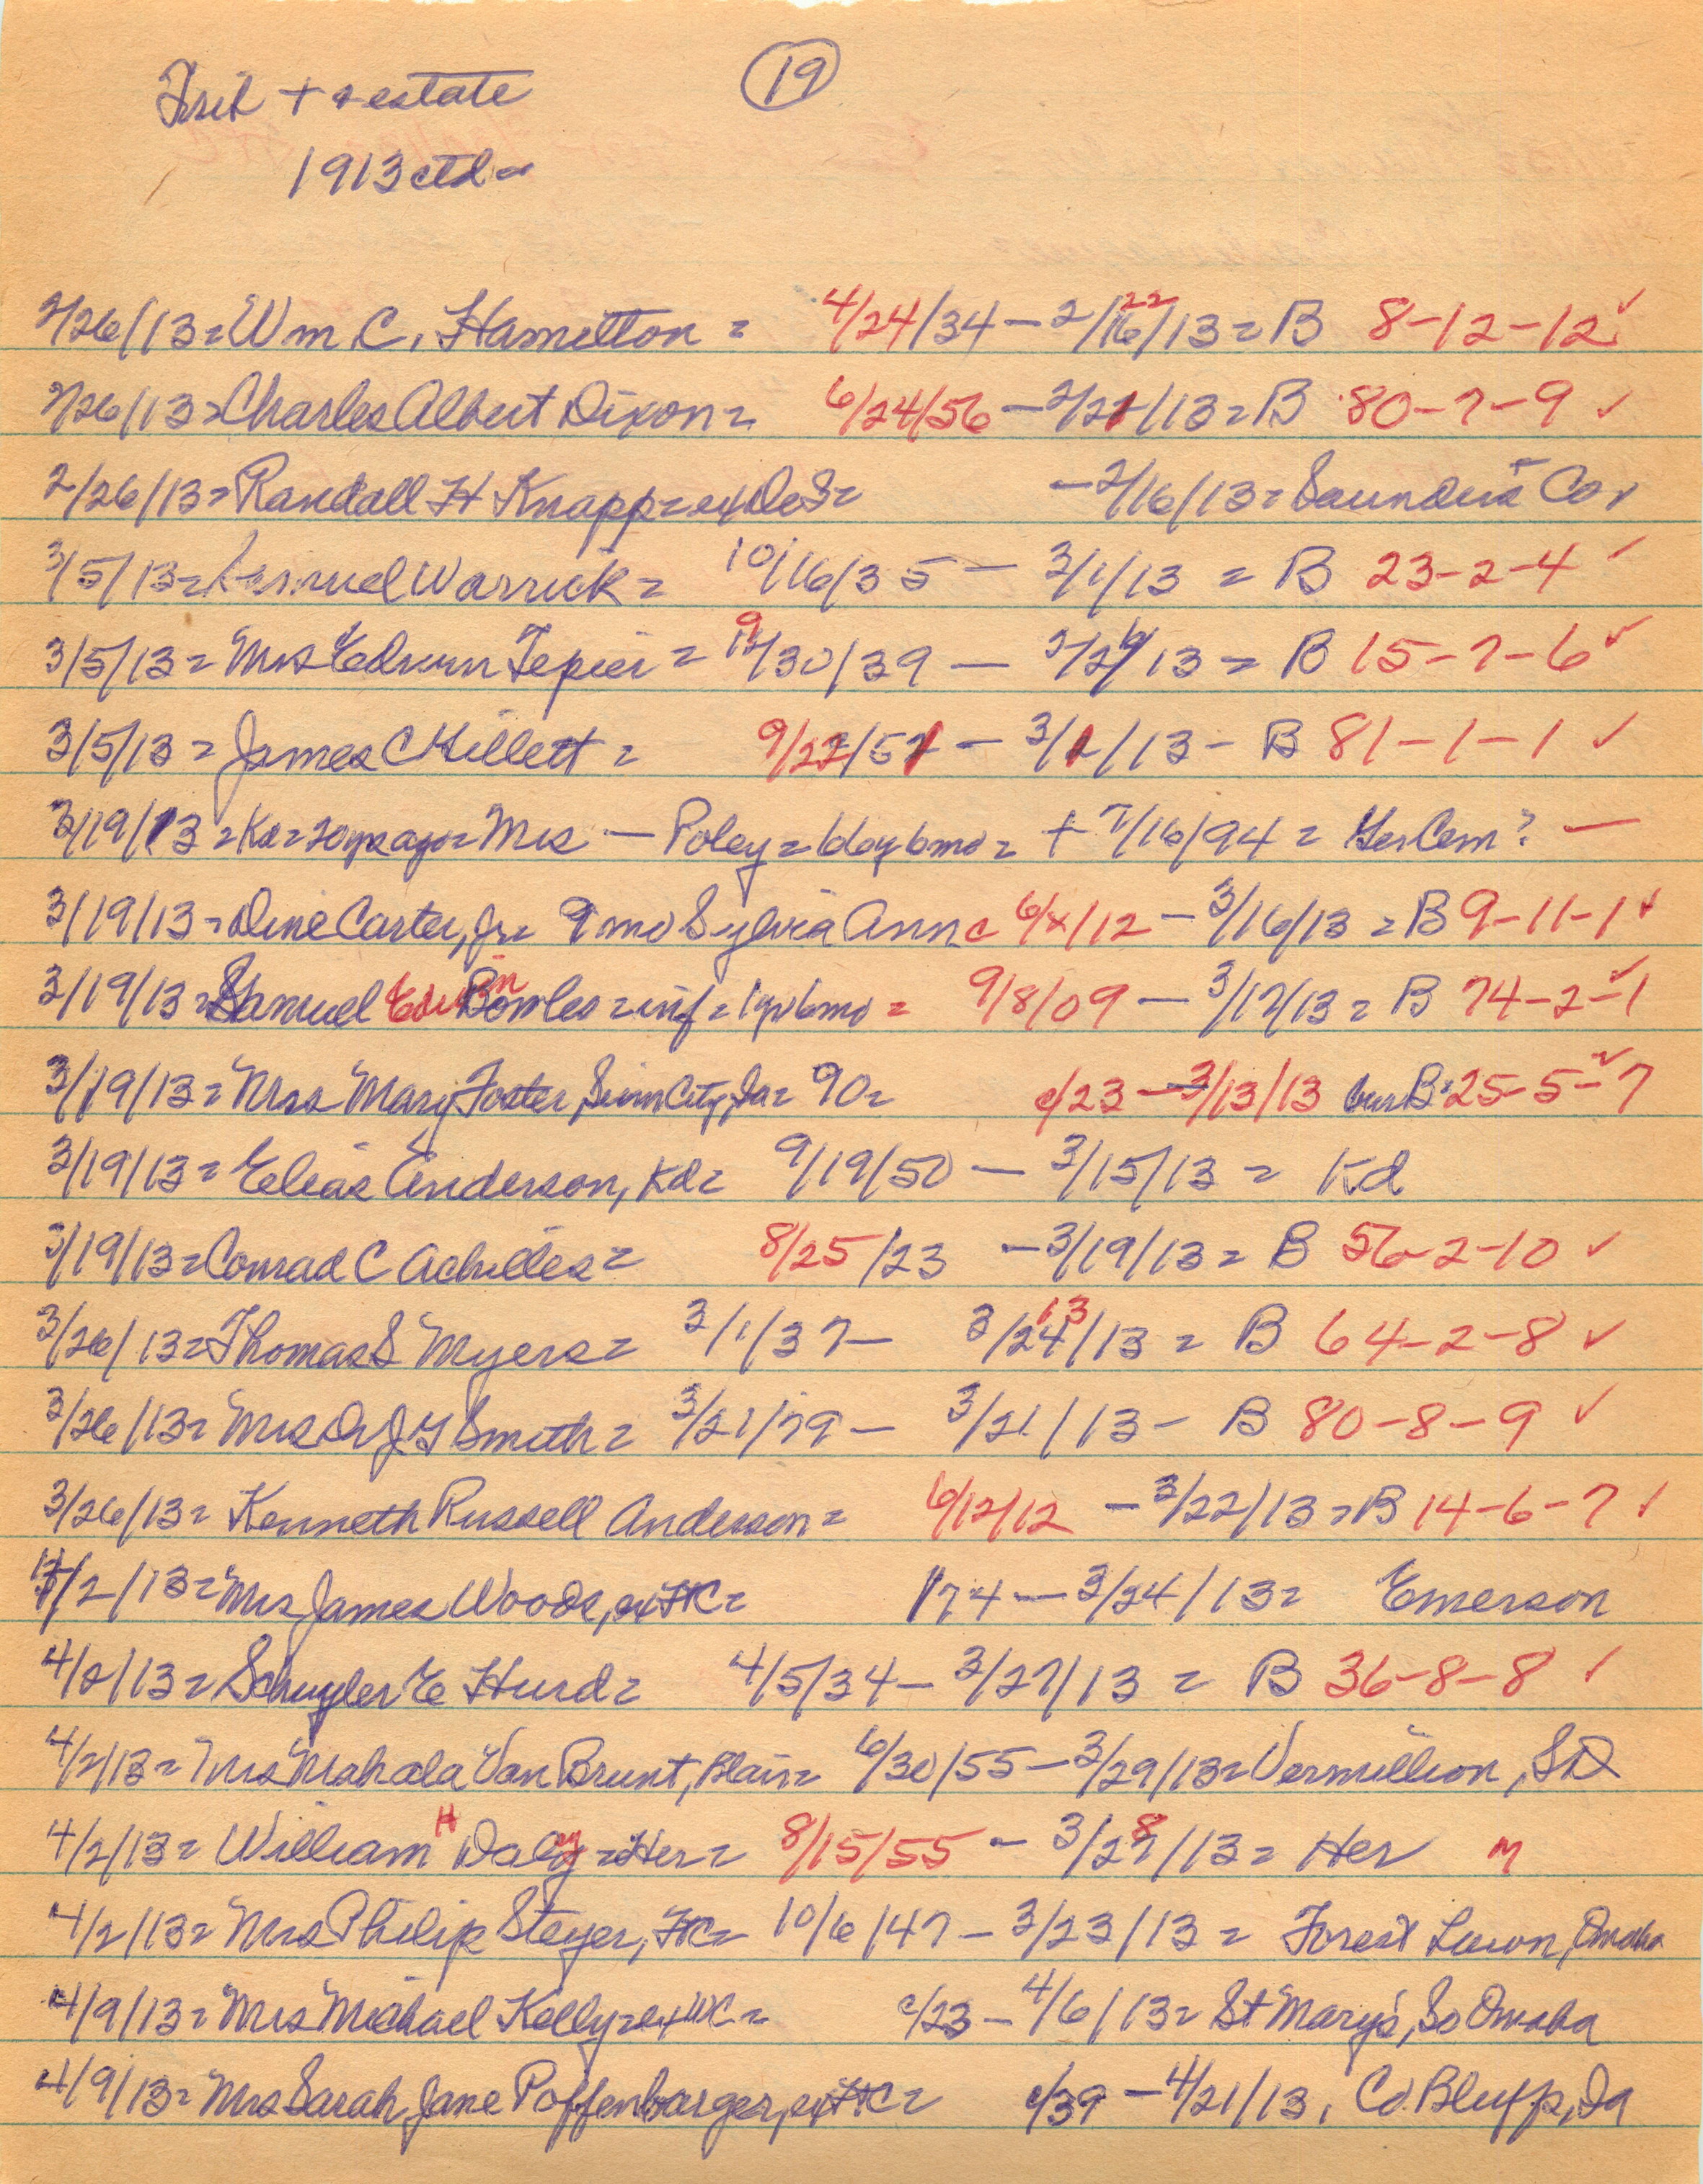 Trib + estate
19
1913 ctd =
2/26/13 = Wm C. Hamilton = 4/24/34 - 2/16/13 = B 8-12-12 ✓
22
2/26/13 = Charles Albert Dixon = 6/24/56 - 2/21/13 = B 80-7-9 ✓
2/26/13 = Randall H Knapp = ex DeS = - 2/16/13 = Saunders Co ✓
3/5/13 = Lemuel Warrick = 10/16/35 - 3/1/13 = B 23-2-4 ✓
3/5/13 = Mrs Edwin Tepier = 9/30/39 - 2/26/13 = B 15-7-6 ✓
3/5/13 = James C Gillett = 9/22/51 - 3/1/13 - B 81-1-1 ✓
3/19/13 = Kd = 20 yrs ago = Mrs - Poley = 66y 6mo = + 2/16/94 = Ger Cem? -
3/19/13 = Dine Carter, Jr = 9 mo Sylvia Ann c 6/x/12 - 3/16/13 = B 9-11-1 ✓
3/19/13 = Samuel Edwin Bowles = inf = 1 yr 6mo = 9/8/09 - 3/17/13 = B 74-2-1 ✓
3/19/13 = Mrs Mary Foster, Sioux City, Ia = 90 = c/23 - 3/13/13 bur B = 25-5-7 ✓
3/19/13 = Elias Anderson, Kd = 9/19/50 - 3/15/13 = Kd
3/19/13 = Conrad C Achilles = 8/25/23 - 3/19/13 = B 56-2-10 ✓
3/26/13 = Thomas S Myers = 3/1/37 - 3/24/13 = B 64-2-8 ✓
13
3/26/13 = Mrs Dr J G Smith = 3/21/79 - 3/21/13 - B 80-8-9 ✓
3/26/13 = Kenneth Russell Anderson = 6/12/12 - 3/22/13 = B 14-6-7 ✓
/2/13 = Mrs James Woods, ex FtC = /74 - 3/24/13 = Emerson
4/2/13 = Schuyler E Hurd = 4/5/34 - 3/27/13 = B 36-8-8 ✓
4/2/13 = Mrs Mahala Van Brunt, Blair = 6/30/55 - 3/29/13 = Vermillion, SD
4/2/13 = William H Daley = Her = 8/15/55 - 3/28/13 = Her M
4/2/13 = Mrs Philip Steyer, FtC = 10/6/47 - 3/23/13 = Forest Lawn, Omaha
4/9/13 = Mrs Michael Kelly = ex WC = c/23 - 4/6/13 = St Mary's, So Omaha
4/9/13 = Mrs Sarah Jane Poffenbarger, ex FtC = c/39 - 4/21/13, Co. Bluffs, Ia